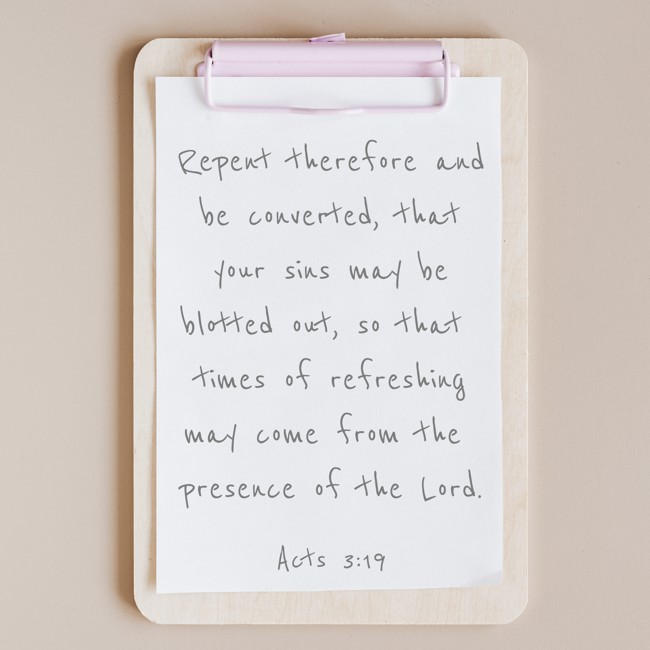 Repent therefore and
be converted, that
your sins may be
blotted out, so that
times of refreshing
may come from the
presence of the Lord.
Acts 3:19